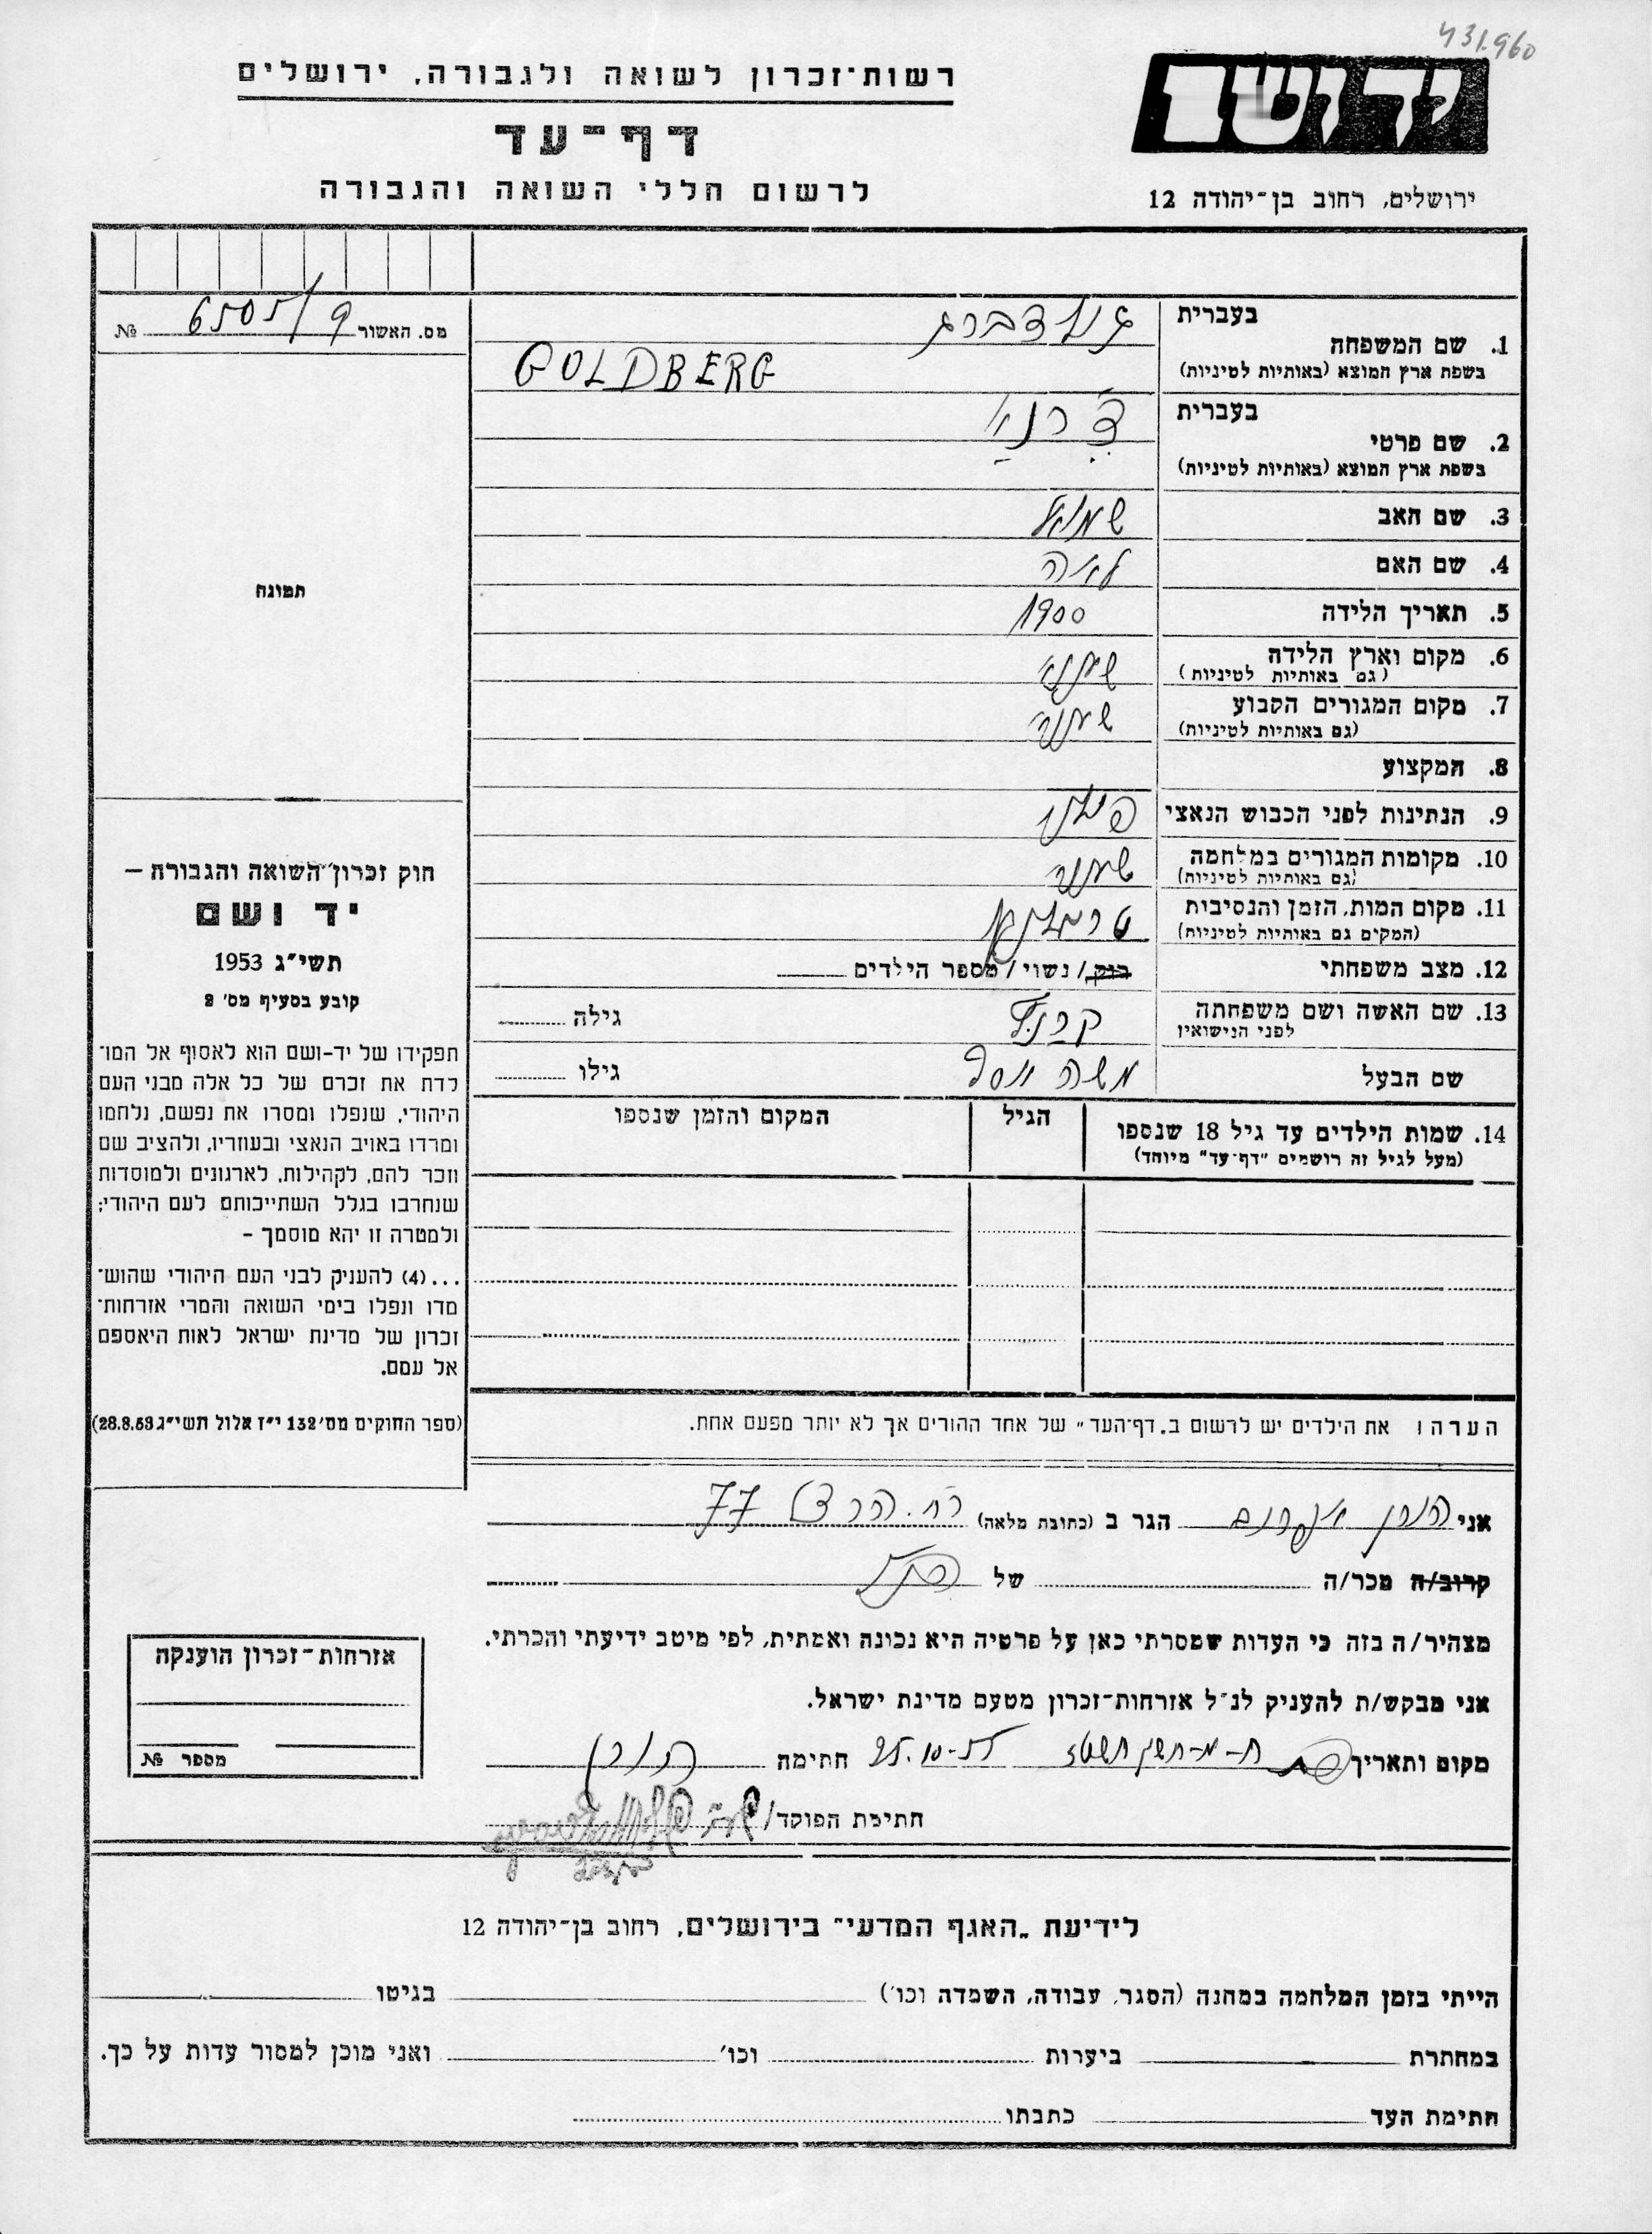 431.960
רשות־זכרון לשואה ולגבורה, ירושלים
יד ושם
דף־עד
לרשום חללי השואה והגבורה
ירושלים, רחוב בן־יהודה 12
מס. האשור 6505/9 №
1. שם המשפחה
בעברית גולדברג
בשפת ארץ המוצא (באותיות לטיניות) GOLDBERG
2. שם פרטי
בעברית צ'רנא
בשפת ארץ המוצא (באותיות לטיניות)
3. שם האב שמואל
4. שם האם לאה
5. תאריך הלידה 1900
6. מקום וארץ הלידה
(גם באותיות לטיניות)
7. מקום המגורים הקבוע
(גם באותיות לטיניות)
8. המקצוע
9. הנתינות לפני הכבוש הנאצי פולין
10. מקומות המגורים במלחמה
(גם באותיות לטיניות)
11. מקום המות, הזמן והנסיבות
(המקים גם באותיות לטיניות)
12. מצב משפחתי רווק / נשוי / מספר הילדים
13. שם האשה ושם משפחתה
לפני הנישואין
גילה
שם הבעל משה יוסף גילו
14. שמות הילדים עד גיל 18 שנספו
(מעל לגיל זה רושמים "דף־עד" מיוחד)
הגיל
המקום והזמן שנספו
תמונה
חוק זכרון השואה והגבורה —
יד ושם
תשי"ג 1953
קובע בסעיף מס' 2
תפקידו של יד-ושם הוא לאסוף אל המו־
לדת את זכרם של כל אלה מבני העם
היהודי, שנפלו ומסרו את נפשם, נלחמו
ומרדו באויב הנאצי ובעוזריו, ולהציב שם
וזכר להם, לקהילות, לארגונים ולמוסדות
שנחרבו בגלל השתייכותם לעם היהודי;
ולמטרה זו יהא מוסמך –
...(4) להעניק לבני העם היהודי שהוש־
מדו ונפלו בימי השואה והמרי אזרחות־
זכרון של מדינת ישראל לאות היאספם
אל עמם.
(ספר החוקים מס' 132 י"ז אלול תשי"ג 28.8.53)
הערה: את הילדים יש לרשום ב„דף־העד" של אחד ההורים אך לא יותר מפעם אחת.
אני הורן אפרים הגר ב (כתובת מלאה) רח. הרצל 77
קרוב/ה מכר/ה של
מצהיר/ה בזה כי העדות שמסרתי כאן על פרטיה היא נכונה ואמתית, לפי מיטב ידיעתי והכרתי.
אני מבקש/ת להעניק לנ"ל אזרחות־זכרון מטעם מדינת ישראל.
מקום ותאריך 25.10-55 חתימה הורן
חתימת הפוקד/
אזרחות־זכרון הוענקה
מספר №
לידיעת „האגף המדעי" בירושלים, רחוב בן־יהודה 12
הייתי בזמן המלחמה במחנה (הסגר, עבודה, השמדה וכו') בגיטו
במחתרת ביערות וכו' ואני מוכן למסור עדות על כך.
חתימת העד כתבתו